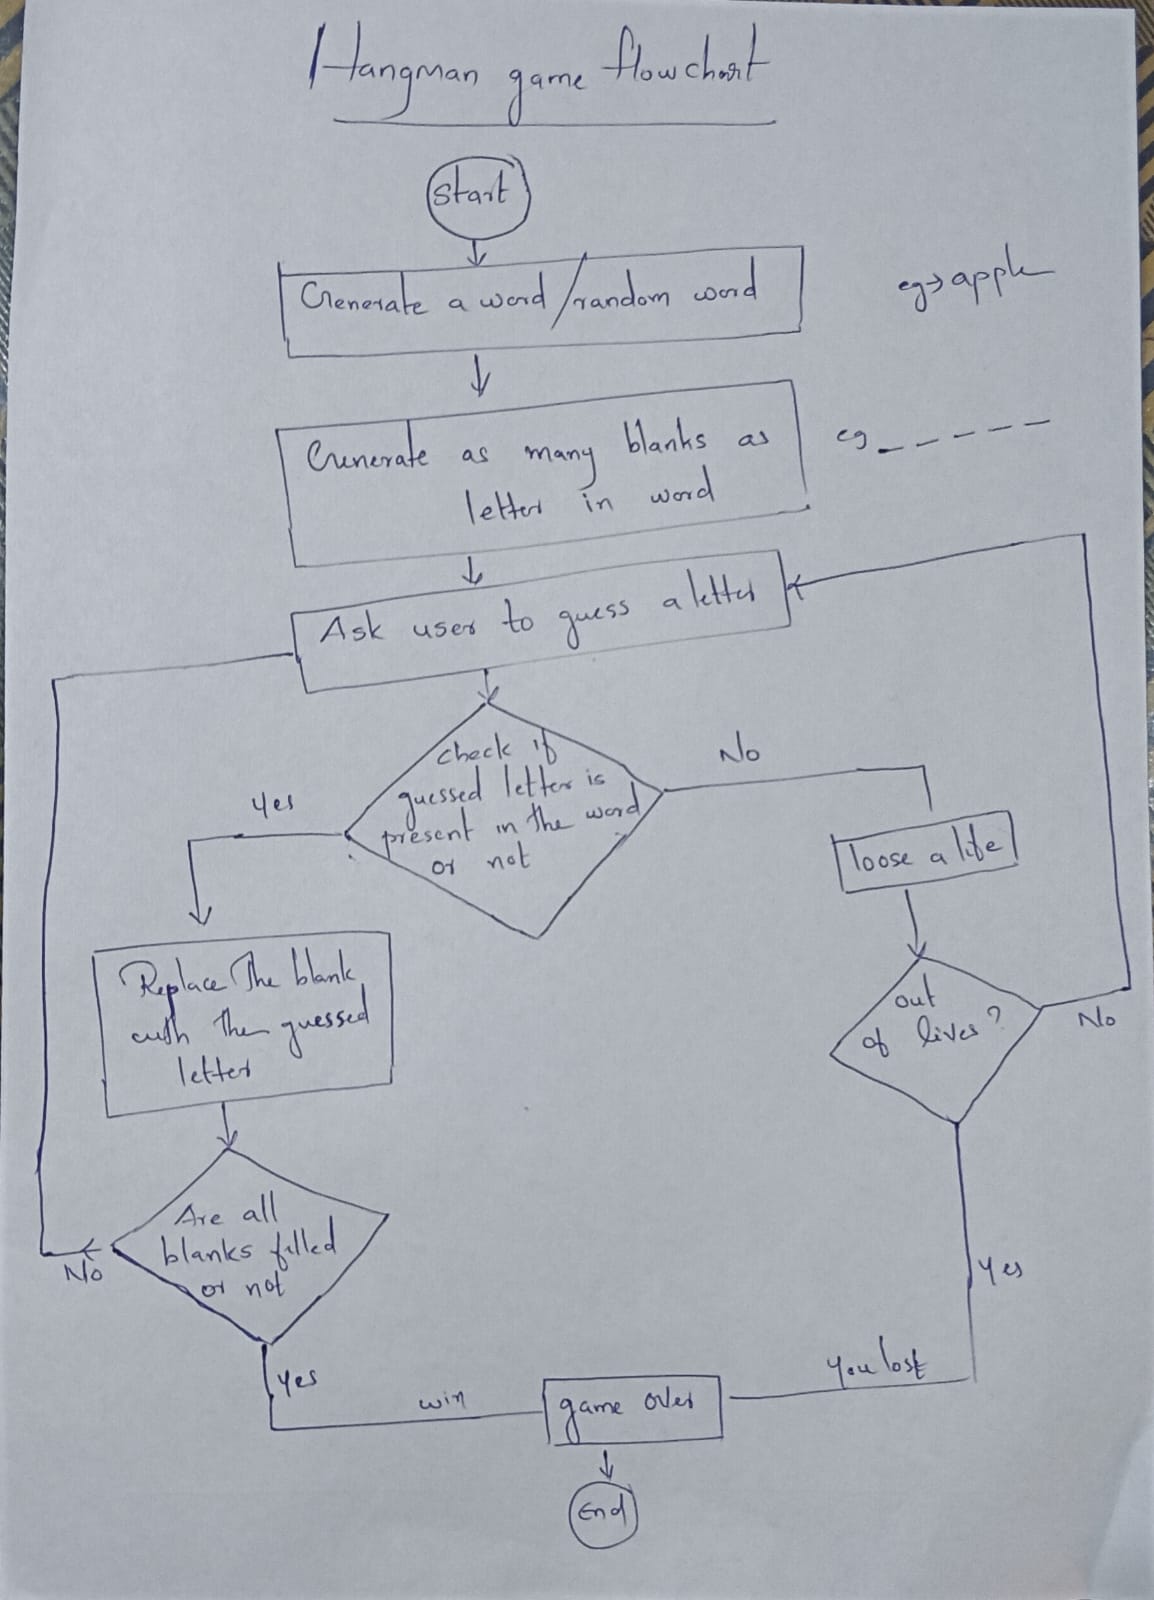 Hangman game flowchart
Start
Generate a word/random word
eg→apple
Generate as many blanks as
letter in word
eg _ _ _ _ _
Ask user to guess a letter
check if
guessed letter is
present in the word
or not
Yes
No
loose a life
Replace The blank
with The guessed
letter
out
of lives?
No
Are all
blanks filled
or not
No
Yes
Yes
win
you lost
game over
End